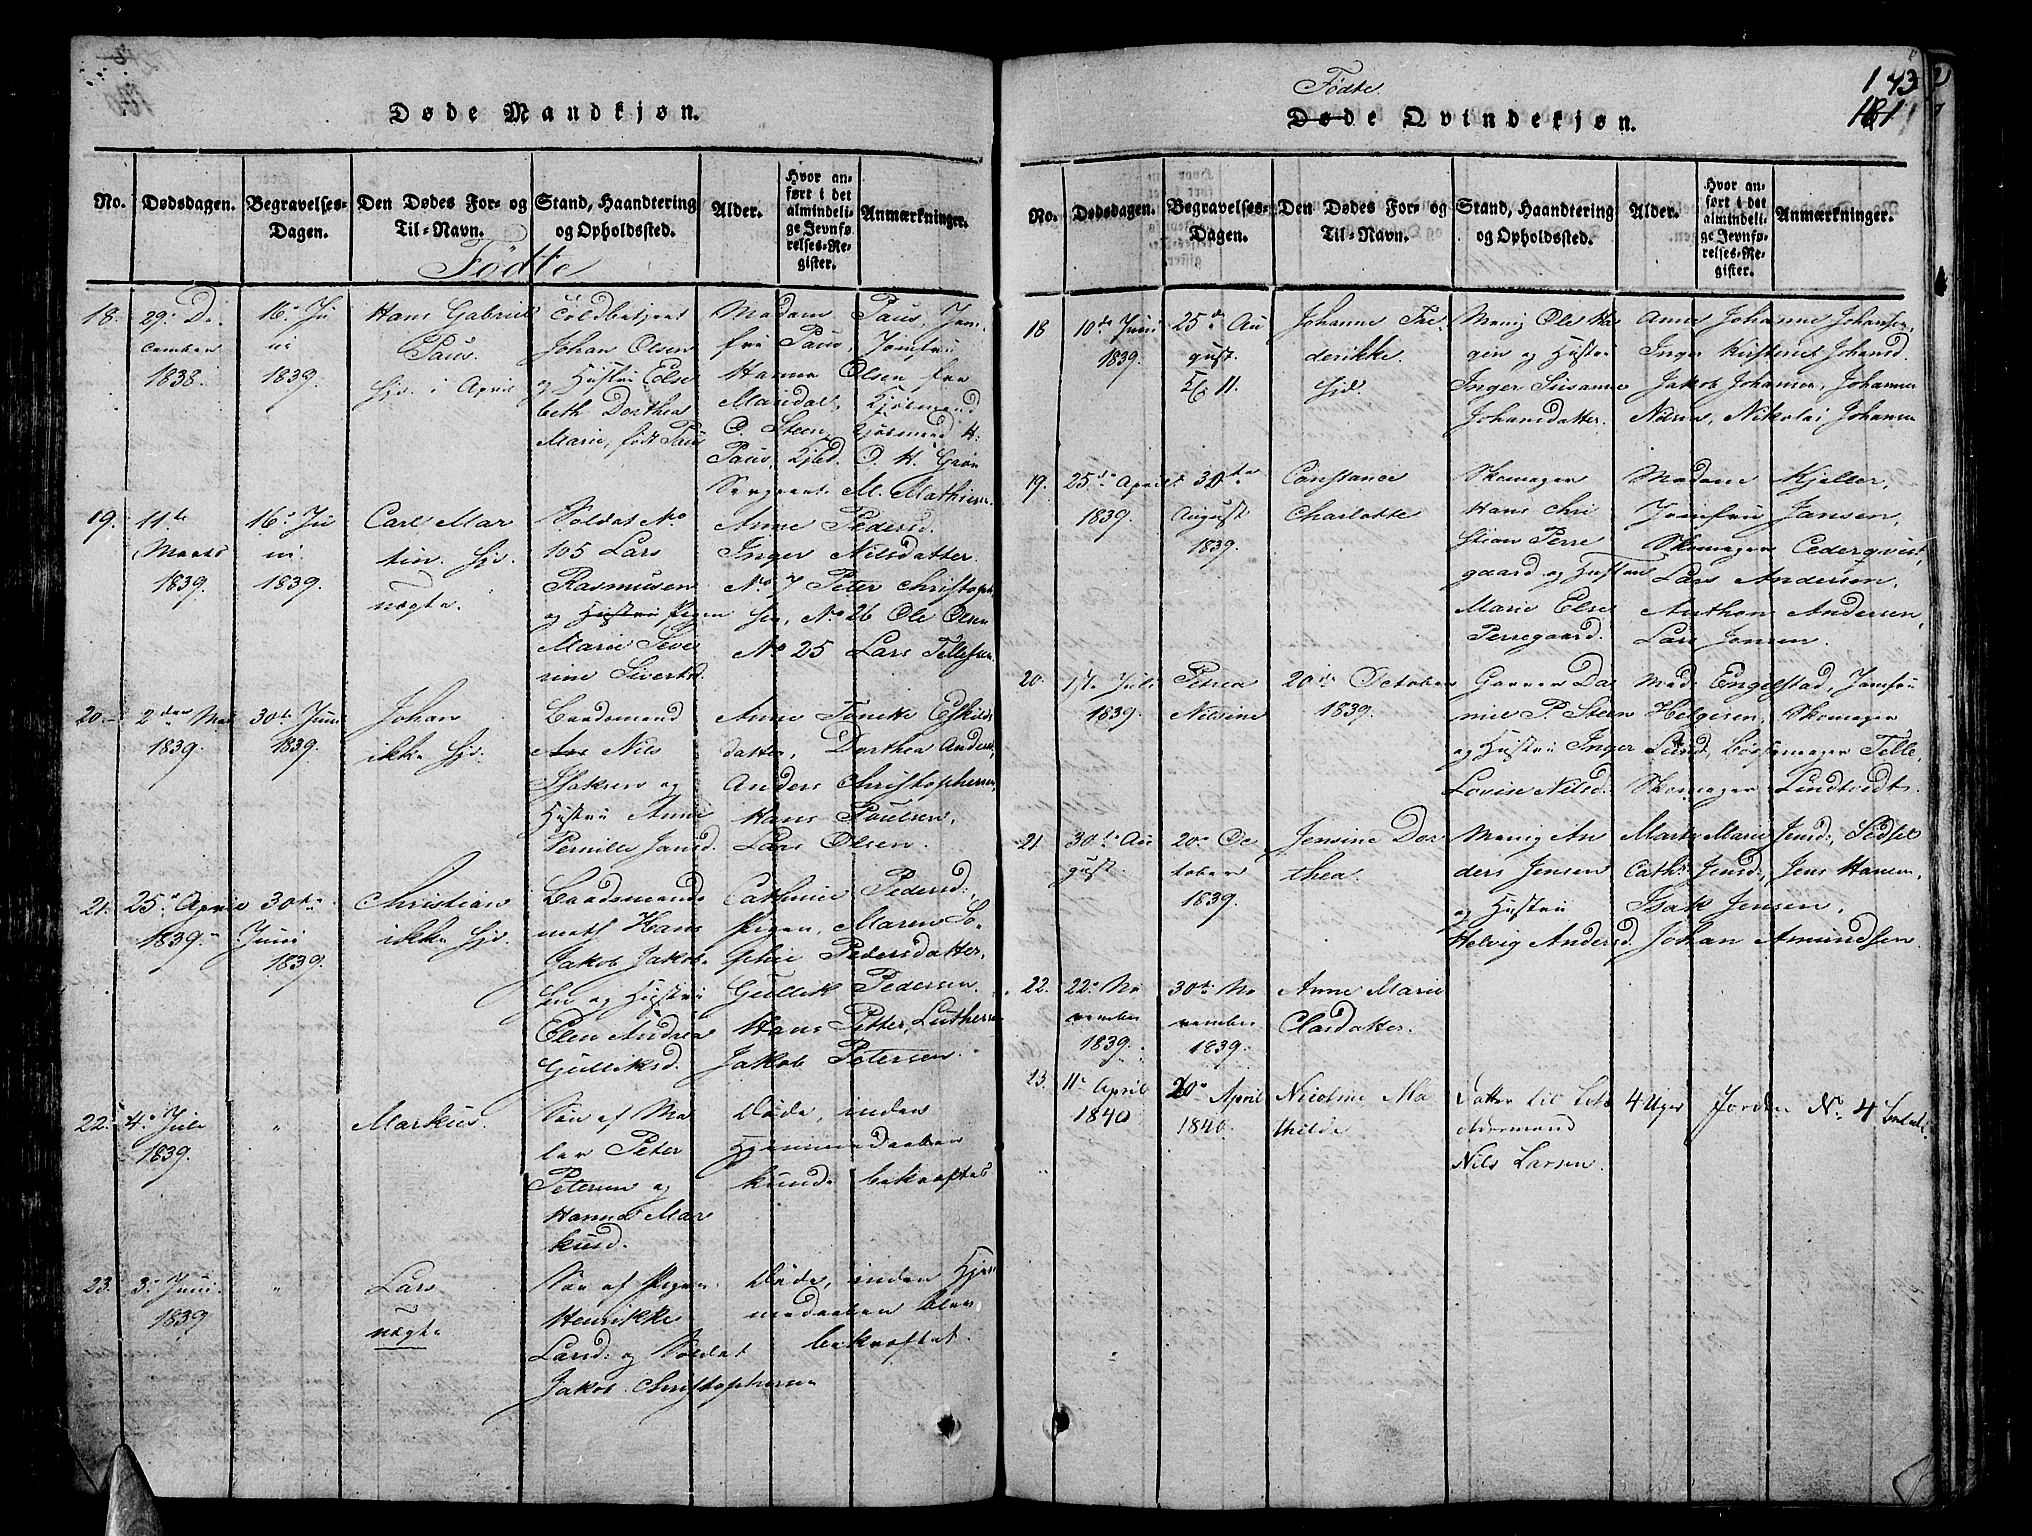 Døde Mandkjøn.
No.
Dødsdagen.
Begravelses-
Dagen.
Den Dødes For- og
Til-Navn.
Stand, Haandtering
og Opholdssted.
Alder.
Hvor an-
ført i det
almindeli-
ge Jevnfø-
relses-Re-
gister.
Anmærkninger.
Fødte
18.
29. De
cember
1838.
16. Ju
ni
1839.
Hans Gabriel
Paus.
Hjd. i April
Johan Olsen
og Hustru Else
beth Dorthea
Marie, født Paus
Madam Paus, Jom-
fru Paus, Jomfru
Hanna Olsen fra
Mandal, Kjøbmand
O Steen, Kjøbmand H.
Paus, Kjbd. O. H. Grøn
Sergeant M. Mathiesen
19.
11te
Marts
1839.
16. Ju
ni
1839.
Carl Mar
tin. Hjd.
uægte.
Soldat No
105 Lars
Rasmusen
og Hustru Pigen
Marie Seve
rine Sivertsd.
Anne Pedersd.
Inger Nilsdatter.
No. 7 Peter Christoph
sen, No 26 Ole Olsen
No 25 Lars Tellefsen.
20.
2den Mai
1839.
30te Juni
1839.
Johan
ikke Hjd.
Baadsmand
Nils
Isaksen og
Hustru Anne
Pernille Jansd.
Anne Tomine Eskilds
datter, Dorthea Anders
Anders Christophersen,
Hans Poulsen,
Lars Olsen.
21.
25. April
1839.
30te
Juni
1839.
Christian
ikke Hjd.
Baadsmands
math Hans
Jakob Jakob-
sen og Hustru
Elen Andrea
Gulliksd.
Cathrine Pedersd.,
Pigen, Maren So-
phie Pedersdatter,
Gullik Pedersen,
Hans Petter Luthersen
Jakob Petersen.
22.
4. Juli
1839.
"
Markus.
Søn af Ma
ler Peter
Petersen og
Hanna Mar
kusd.
Døde, inden
Hjemmedaaben
kunde bekræftes
23.
3. Juni.
1839
"
Lars
uægte
Søn af Pigen
Henrikke
Larsd. og Soldat
Jakob Christophersen
Døde, inden Hjem
medaaben blev
bekræftet.
143
181
Fødte.
Døde Qvindekjøn.
No.
Dødsdagen.
Begravelses-
Dagen.
Den Dødes For- og
Til-Navn.
Stand, Haandtering
og Opholdssted.
Alder.
Hvor an-
ført i det
almindeli-
ge Jevnfø-
relses-Re-
gister.
Anmærkninger.
18
10de Juni
1839.
25de Au
gust.
Johanne Fre
derikke.
Hjd.
Menig Ole Ha
gen og Hustru
Inger Susanne
Johansdatter.
Anne Johanne Johansen,
Inger Kirstine Johansd.
Jakob Johansen, Johannes
Nilsen, Nikolai Johansen
19.
25de April
1839.
30te
August
1839.
Constance
Charlotte
Skomager
Hans Chri
stian Perre
gaard og Hustru
Marie Else
Perregaard.
Madam Kjeller,
Jomfru Jansen,
Skomager Cederqvist,
Lars Andersen,
Anthon Andersen,
Lars Jonsen.
20.
17te Juli
1839.
Petrea
Nilsine
20de October
1839.
Garver Da
niel P. Steen
og Hustru Inger
Lovise Nilsd.
Mad. Engelstad, Jomfru
Helgesen, Skomager
Lund, Bøssemager Telle,
Skomager Lindtvedt.
21.
30te Au
gust.
20. Oc
tober
1839.
Jensine Dor
thea.
Menig An
ders Jensen
og Hustru
Helvig Andersd.
Marte Marie Jensd., Sidsel
Cath. Jensd., Jens Hansen,
Isak Jensen,
Johan Amundsen.
22.
22. No
vember
1839.
30te No
vember
1839.
Anne Marie
Olasdatter.
23.
11. April
1840
20. April
1840.
Nicoline Ma
thilde
Datter til Lods
oldermand
Nils Larsen.
4 Uger
Jorden No. 4